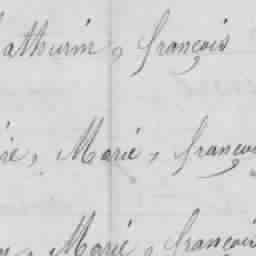 athurin, François
re, Marie, françoi
Marie, françois